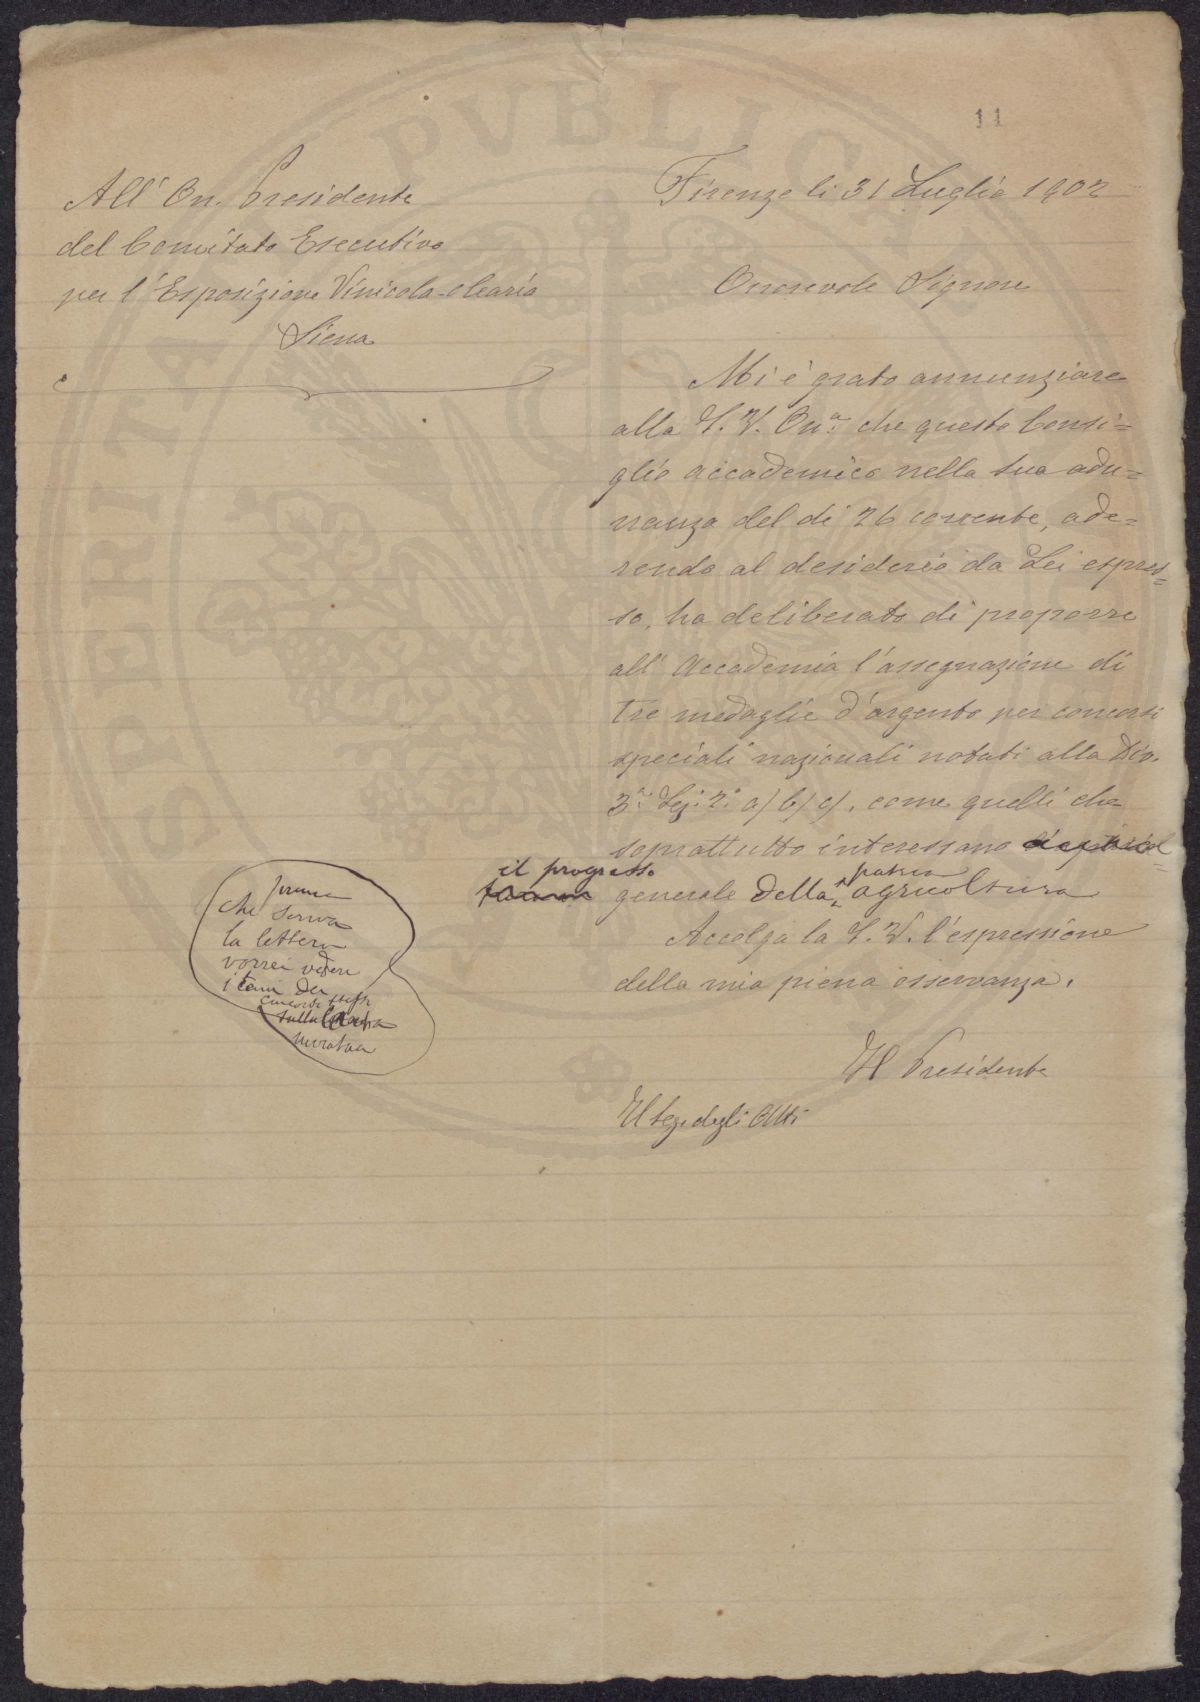 11
All' On. Presidente
del Comitato Esecutivo
per l'Esposizione Vinicola-olearia
Siena
Firenze li 31 Luglio 1902
Onorevole Signore
Mi è grato annunziare
alla S. V. On.a che questo Consi=
glio accademico nella sua adu=
nanza del dì 26 corrente, ade=
rendo al desiderio da Lei espres=
so, ha deliberato di proporre
all' Accademia l'assegnazione di
tre medaglie d'argento per concorsi
speciali nazionali notati alla Div.
3.a Sez. 2.a a/ b/ c/, come quelli che
soprattutto interessano
il progresso
generale della patria agricoltura
Accolga la S. V. l'espressione
della mia piena osservanza.
Il Presidente
Il Seg. degli Atti
prima
che scriva
la lettera
vorrei vedere
i temi dei
concorsi
sulla
PVBLICAE